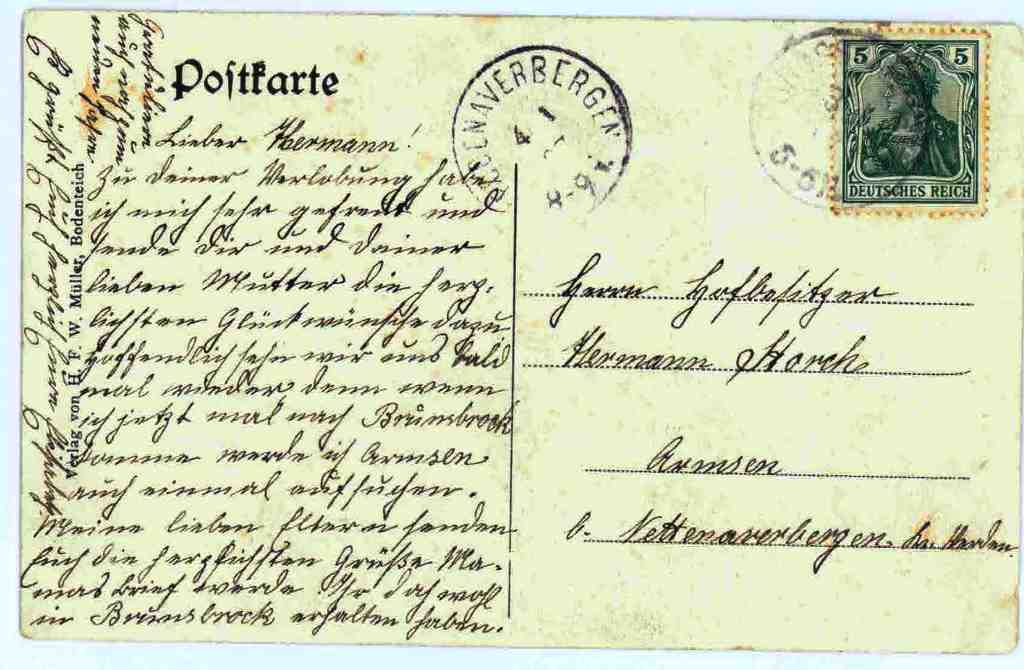 Postkarte
Lieber Hermann!
Zu deiner Verlobung habe
ich mich sehr gefreut und
sende Dir und Deiner
lieben Mutter die herz-
lichsten Glückwünsche dazu
hoffendlich sehn wir uns bald
mal wieder denn wenn
ich jetzt mal nach Brunsbrock
komme werde ich Armsen
auch einmal aufsuchen.
Meine lieben Eltern senden
Euch die herzlichsten Grüße Ma-
mas Brief werde Ihr doch wohl
in Brunsbrock erhalten haben.
Es grüßt Euch herzlich
Verlag von H. F. W. Müller, Bodenteich
NAVERBERGEN
4 1
8-9
5-6
5 5
DEUTSCHES REICH
Herrn Hofbesitzer
Hermann Storch
Armsen
b. Nettenaverbergen. Kr. Verden.